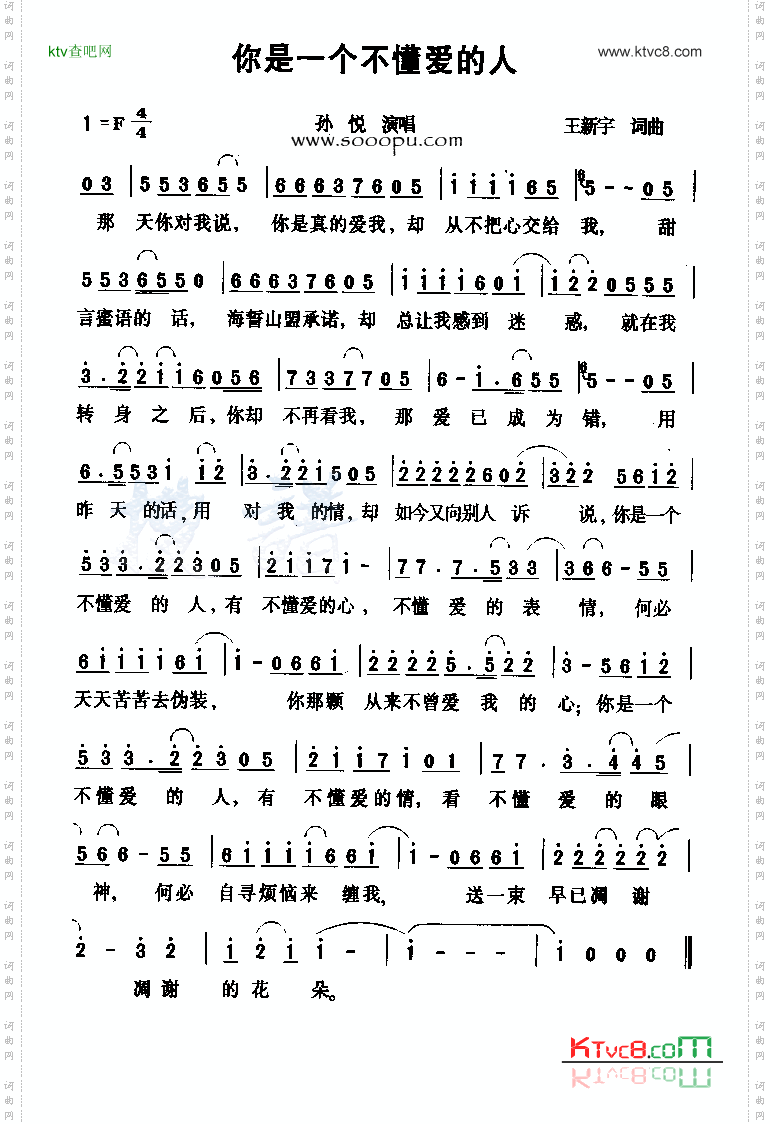 ktv查吧网
www.ktvc8.com
你是一个不懂爱的人
1=F 4/4
孙 悦 演唱
王新宇 词曲
www.sooopu.com
03 | 553655 | 66637605 | i i i i65 | 6 5-~05 |
那 天你对我说， 你是真的爱我，却 从不把心交给 我， 甜
55365 50 | 66637605 | i i i i60i | i220555 |
言蜜语的 话， 海誓山盟承诺，却 总让我感到 迷 惑， 就在我
3.22ii6056 | 7337705 | 6-i.655 | 6 5--05 |
转 身 之 后，你却 不再看我， 那 爱 已 成 为 错， 用
6.553i i2 | 3.22i505 | 22222602 | 3 2 2 56i2 |
昨 天 的话，用 对 我 的情，却 如今又向别人 诉 说，你是一个
533.22305 | 2ii7i- | 77.7.533 | 366-55 |
不懂爱 的 人，有 不懂爱的心， 不懂 爱 的 表 情，何必
6iiii6i | i-066i | 22225.522 | 3-56i2 |
天天苦苦去伪装， 你那颗 从来不曾爱 我 的 心；你是一个
533.22305 | 2ii7i0i | 77.3.445 |
不懂爱 的 人，有 不懂爱的情，看 不懂 爱 的 眼
566-55 | 6iiii66i | i-066i | 222222 |
神， 何必 自寻烦恼来 缠我， 送一束 早已凋 谢
2-32 | i2ii-- | i--- | i000 ‖
凋谢 的 花 朵。
KTvc8.com
词曲网